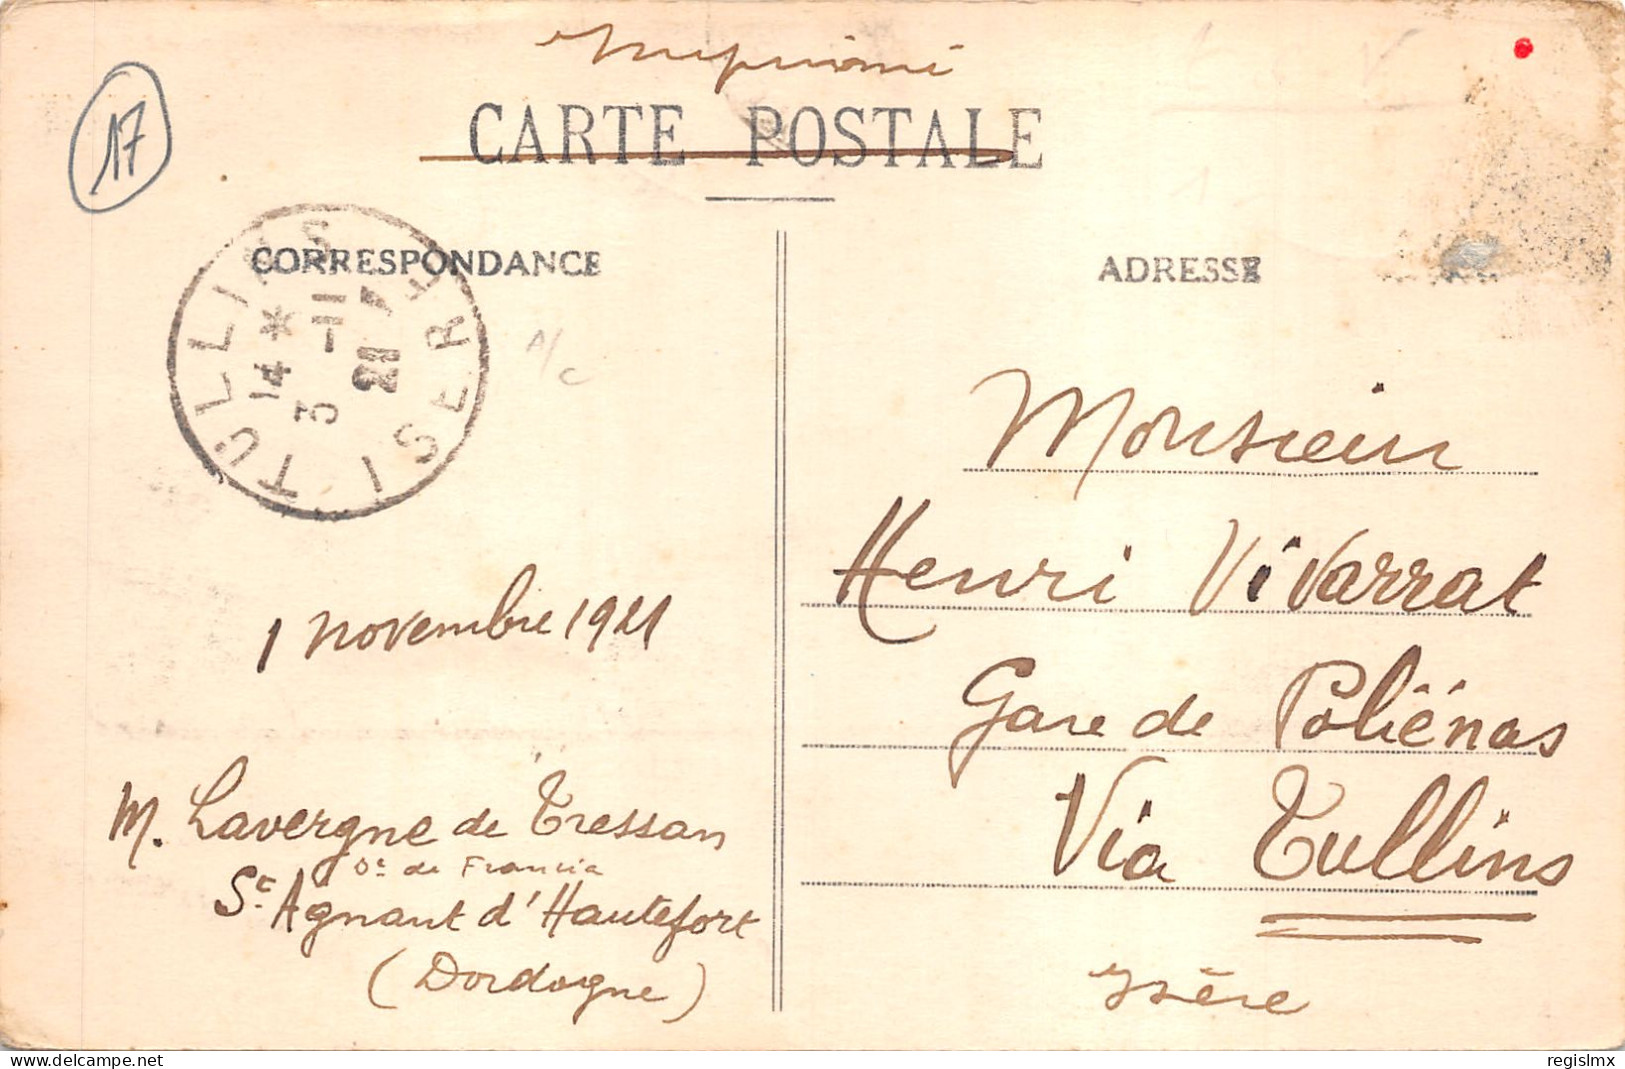 Imprimé
17
CARTE POSTALE
CORRESPONDANCE
ADRESSE
TULLINS ISERE
14 *
3 -11
21
A/C
1 novembre 1921
M. Lavergne de Tressan
de Francia
St Agnant d'Hautefort
(Dordogne)
Monsieur
Henri Vivarrat
Gare de Poliénas
Via Tullins
Isère
delcampe.net
regislmx